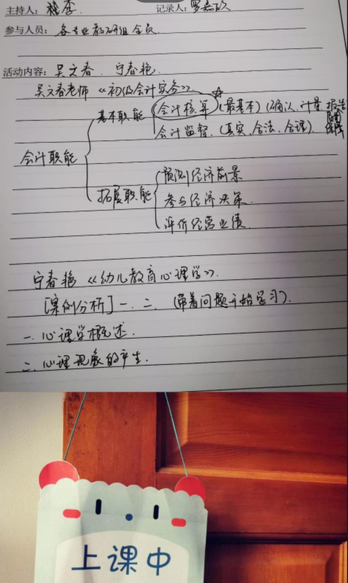 主持人： 记录人：
参与人员：各专业教研组全员
活动内容：吴文春、宁春艳
吴文春老师《初级会计实务》
基本职能 会计核算（最基本）（确认、计量、报告
会计监督（真实、合法、合理）
会计职能
拓展职能 预测经济前景
参与经济决策
评价经营业绩
宁春艳《幼儿教育心理学》
[案例分析]一、二、（带着问题开始学习）
一、心理学概述
二、心理现象的产生.
上课中